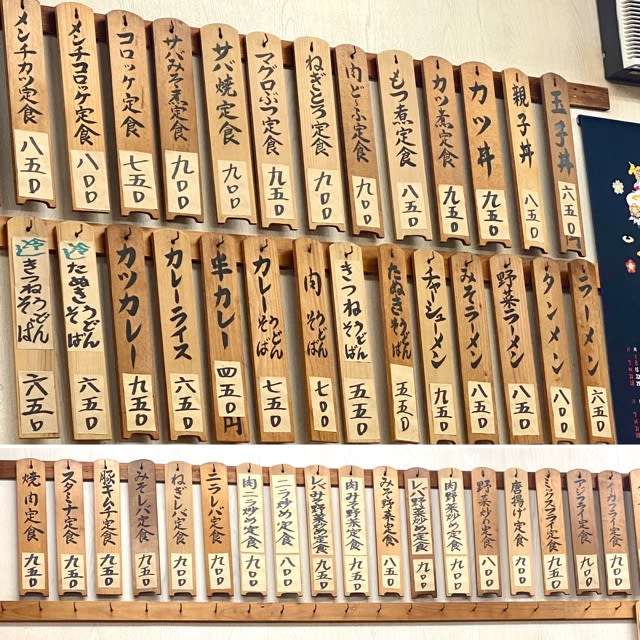 玉子丼 六五〇円
親子丼 八五〇
カツ丼 九五〇
カツ煮定食 九五〇
もつ煮定食 八五〇
肉どーふ定食 九〇〇
ねぎとろ定食 九〇〇
マグロぶつ定食 九五〇
サバ焼定食 九〇〇
サバみそ煮定食 九〇〇
コロッケ定食 七五〇
メンチコロッケ定食 八〇〇
メンチカツ定食 八五〇
ラーメン 六五〇
タンメン 八〇〇
野菜ラーメン 八五〇
みそラーメン 八五〇
チャーシューメン 九五〇
たぬきうどんそば 五五〇
きつねうどんそば 五五〇
肉うどんそば 七〇〇
カレーうどんそば 七五〇
半カレー 四五〇円
カレーライス 六五〇
カツカレー 九五〇
冷したぬきうどんそば 六五〇
冷しきつねうどんそば 六五〇
イカフライ定食 九〇〇
アジフライ定食 九〇〇
ミックスフライ定食 九五〇
唐揚げ定食 九〇〇
野菜炒め定食 八〇〇
肉野菜炒め定食 九〇〇
レバ野菜炒め定食 九〇〇
みそ野菜定食 八五〇
肉みそ野菜定食 九五〇
レバみそ野菜定食 九五〇
ニラ炒め定食 八〇〇
肉ニラ炒め定食 九〇〇
ニラレバ定食 九〇〇
ねぎレバ定食 九〇〇
みそレバ定食 九五〇
豚キムチ定食 九五〇
スタミナ定食 九五〇
焼肉定食 九五〇